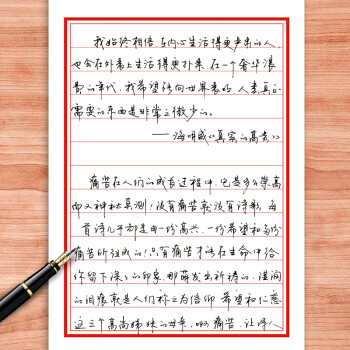 我始终相信，在内心生活得更严肃的人，
也会在外表上生活得更朴素。在一个奢华浪
费的年代，我希望能向世界表明，人类真正
需要的东西是非常之微少的。
——海明威《真实的高贵》
痛苦在人们的成长过程中，它是多么崇高
而又神秘莫测！没有痛苦就没有诗歌，每
首诗几乎都是由一份高兴、一份希望和两份
痛苦所组成的！只有痛苦才能在生命中给
你留下深深的印象，那萌发出祈祷的、湿润
的泪痕就是人们称之为信仰、希望和仁慈
这三个高尚姊妹的母亲，啊，痛苦，让俗人